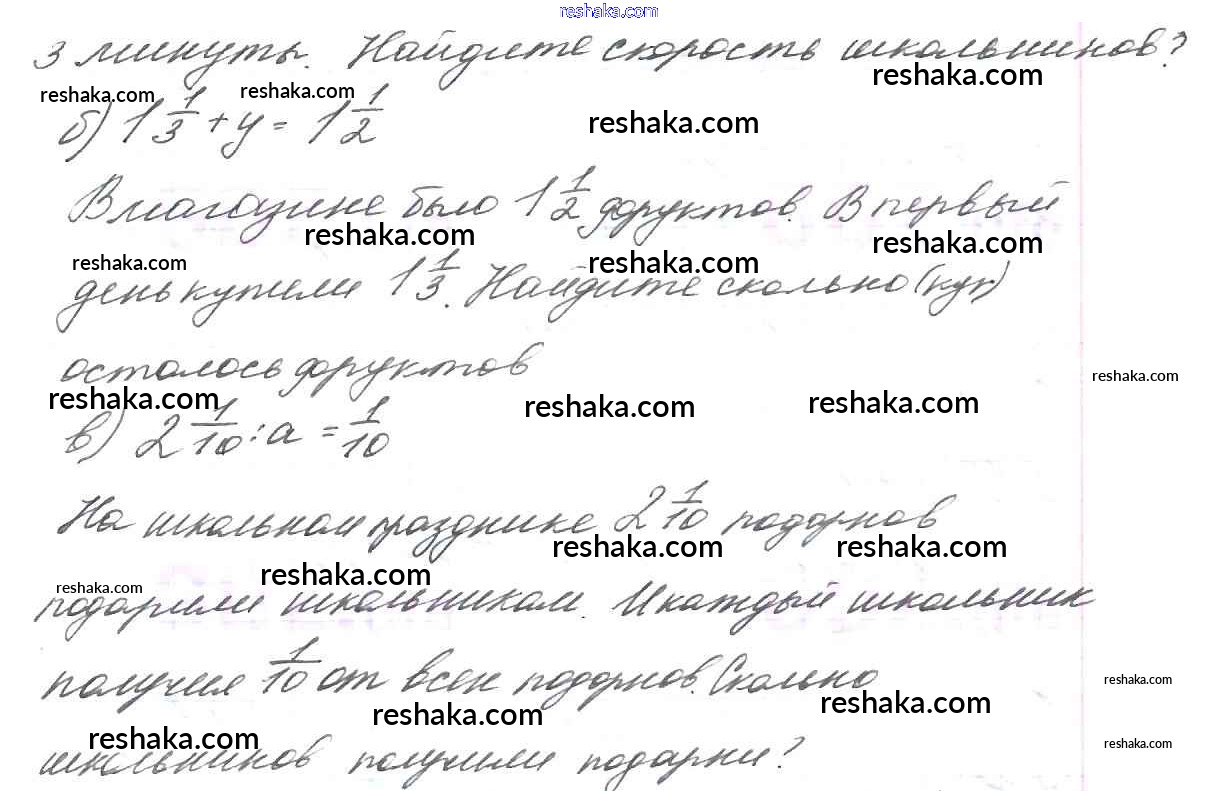 reshaka.com
3 минуты. Найдите скорость школьников?
reshaka.com
reshaka.com reshaka.com
б) 1 1/3 + y = 1 1/2
reshaka.com
В магазине было 1 1/2 фруктов. В первый
reshaka.com reshaka.com
reshaka.com reshaka.com
день купили 1 1/3. Найдите сколько (кух)
осталось фруктов
reshaka.com
reshaka.com reshaka.com reshaka.com
в) 2 1/10 : a = 1/10
На школьном празднике 2 1/10 подарков
reshaka.com reshaka.com
reshaka.com reshaka.com
подарили школьникам. И каждый школьник
получил 1/10 от всех подарков. Сколько
reshaka.com
reshaka.com reshaka.com
reshaka.com reshaka.com
школьников получили подарки?